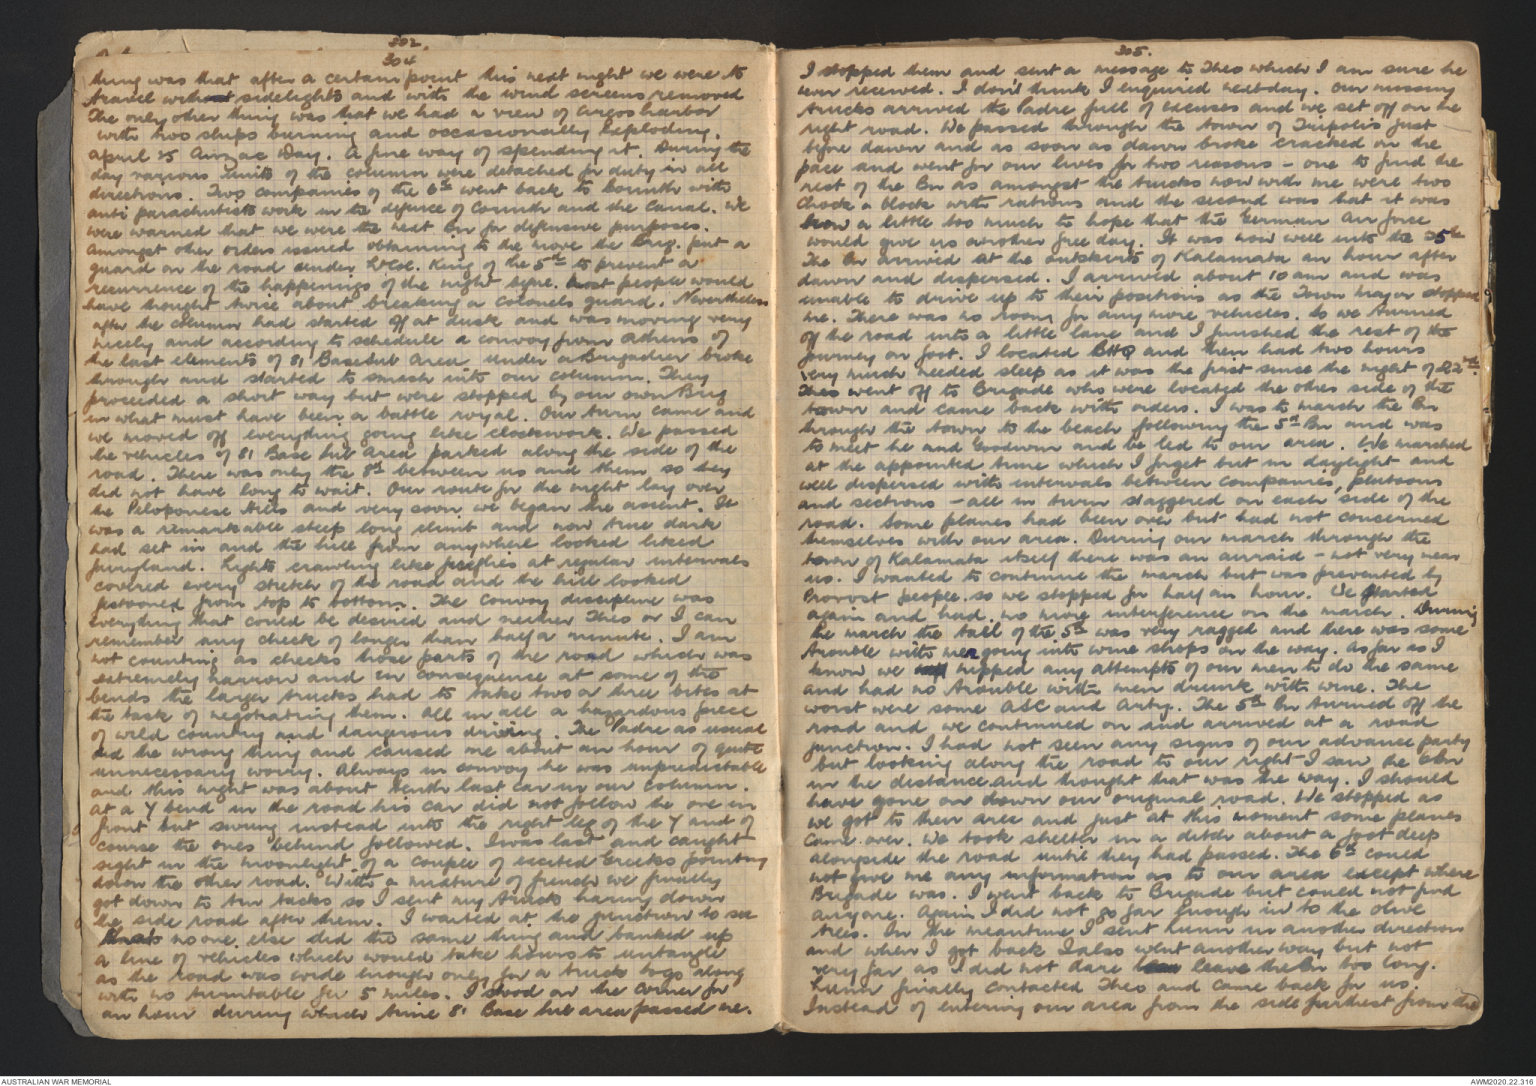 302.
304
thing was that after a certain point this next night we were to
travel without sidelights and with the wind screens removed
The only other thing was that we had a view of Argos harbor
with two ships burning and occasionally exploding.
April 25 Anzac Day. A fine way of spending it. During the
day various units of the column were detached for duty in all
directions. Two companies of the 6th went back to Corinth with
anti parachutists work in the defence of Corinth and the Canal. We
were warned that we were the next Bn for defensive purposes.
Amongst other orders issued obtaining to the move the Brig. put a
guard on the road under Lt Col. King of the 5th to prevent a
recurrence of the happenings of the night before. Most people would
have thought twice about breaking a colonels guard. Nevertheless
after the column had started off at dusk and was moving very
nicely and according to schedule a convoy from Athens of
the last elements of 81 Base Sub Area under a Brigadier broke
through and started to smash into our column. They
proceeded a short way but were stopped by our own Brig
in what must have been a battle royal. Our turn came and
we moved off everything going like clockwork. We passed
the vehicles of 81 Base Sub Area parked along the side of the
road. There was only the 8th between us and them so they
did not have long to wait. Our route for the night lay over
the Peloponese Hills and very soon we began the ascent. It
was a remarkable steep long climb and now true dark
had set in and the hill from anywhere looked liked
fairyland. Lights crawling like fireflies at regular intervals
covered every stretch of the road and the hill looked
festooned from top to bottom. The convoy discipline was
everything that could be desired and neither Theo or I can
remember any check of longer than half a minute. I am
not counting as checks those parts of the road which was
extremely narrow and in consequence at some of the
bends the larger trucks had to take two or three bites at
the task of negotiating them. All in all a hazardous piece
of wild country and dangerous driving. The Padre as usual
did the wrong thing and caused me about an hour of quite
unnecessary worry. Always in convoy he was unpredictable
and this night was about tenth last car in our column.
At a Y bend in the road his car did not follow the one in
front but swung instead into the right leg of the Y and of
course the ones behind followed. I was last and caught
sight in the moonlight of a couple of excited Greeks pointing
down the other road. With a mixture of french we finally
got down to tin tacks so I sent my truck haring down
the side road after them. I waited at the junction to see
that no one else did the same thing and banked up
a line of vehicles which would take hours to untangle
as the road was wide enough only for a truck bogs along
with no turntable for 5 miles. I stood on the corner for
an hour during which time 81 Base Sub area passed me.
305.
I stopped them and sent a message to Theo which I am sure he
never received. I don't think I enquired next day. Our missing
trucks arrived the Padre full of excuses and we set off on the
right road. We passed through the town of Tripolis just
before dawn and as soon as dawn broke cracked on the
pace and went for our lives for two reasons - one to find the
rest of the Bn as amongst the trucks now with me were two
chock a block with rations and the second was that it was
a little too much to hope that the German Air force
would give us another free day. It was now well into the 25th
The Bn arrived at the outskirts of Kalamata an hour after
dawn and dispersed. I arrived about 10 am and was
unable to drive up to their positions as the Town Mayor stopped
me. There was no room for any more vehicles. So we turned
off the road into a little lane and I finished the rest of the
journey on foot. I located BHQ and then had two hours
very much needed sleep as it was the first since the night of 22nd.
Theo went off to Brigade who were located the other side of the
town and came back with orders. I was to march the Bn
through the town to the beach following the 5th Bn and was
to meet he and Goodwin and be led to our area. We marched
at the appointed time which I forget but in daylight and
well dispersed with intervals between companies, platoons
and sections - all in turn staggered on each side of the
road. Some planes had been over but had not concerned
themselves with our area. During our march through the
town of Kalamata itself there was an airraid - not very near
us. I wanted to continue the march but was prevented by
Provost people so we stopped for half an hour. We started
again and had no more interference on the march. During
the march the tail of the 5th was very ragged and there was some
trouble with men going into wine shops on the way. As far as I
know we nipped any attempts of our men to do the same
and had no trouble with men drunk with wine. The
worst were some ASC and Arty. The 5th Bn turned off the
road and we continued on and arrived at a road
junction. I had not seen any signs of our advance party
but looking along the road to our right I saw the 6 Bn
in the distance and thought that was the way. I should
have gone on down our original road. We stopped as
we got to their area and just at this moment some planes
came over. We took shelter in a ditch about a foot deep
alongside the road until they had passed. The 6th could
not give me any information as to our area except where
Brigade was. I went back to Brigade but could not find
anyone. Again I did not go far enough in to the olive
trees. In the meantime I sent Lunn in another direction
and when I got back I also went another way but not
very far as I did not dare leave the Bn too long.
Lunn finally contacted Theo and came back for us.
Instead of entering our area from the side furthest from the
AUSTRALIAN WAR MEMORIAL
AWM2020.22.316